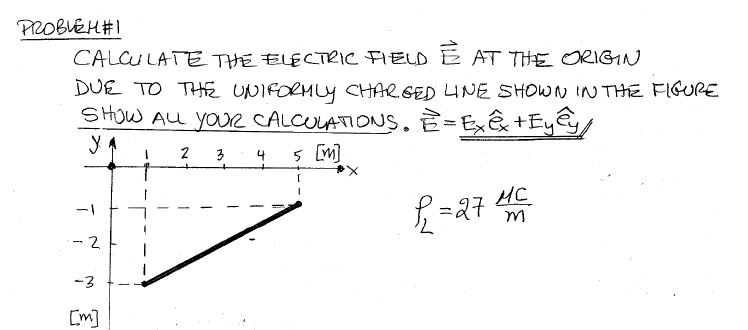 PROBLEM#1
CALCULATE THE ELECTRIC FIELD E⃗ AT THE ORIGIN
DUE TO THE UNIFORMLY CHARGED LINE SHOWN IN THE FIGURE
SHOW ALL YOUR CALCULATIONS. E⃗ = Exêx + Eyêy
y 1 2 3 4 5 [m]
x
-1
ρL = 27 μC/m
-2
-3
[m]